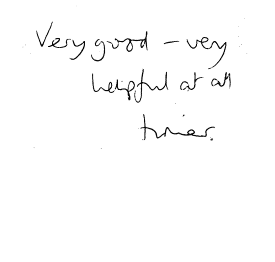 Very good – very
helpful at all
times.